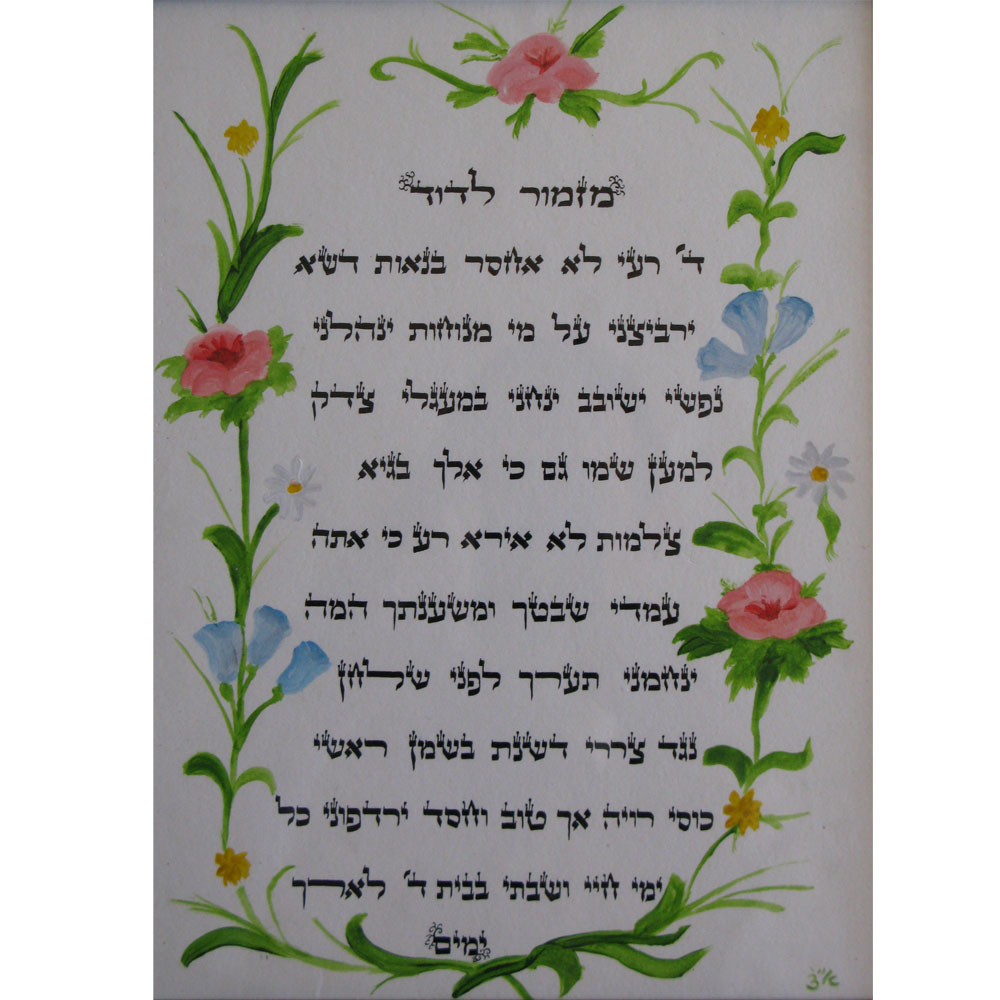 מזמור לדוד
ד' רעי לא אחסר בנאות דשא
ירביצני על מי מנוחות ינהלני
נפשי ישובב ינחני במעגלי צדק
למען שמו גם כי אלך בגיא
צלמות לא אירא רע כי אתה
עמדי שבטך ומשענתך המה
ינחמני תערך לפני שלחן
נגד צררי דשנת בשמן ראשי
כוסי רויה אך טוב וחסד ירדפוני כל
ימי חיי ושבתי בבית ד' לארך
ימים